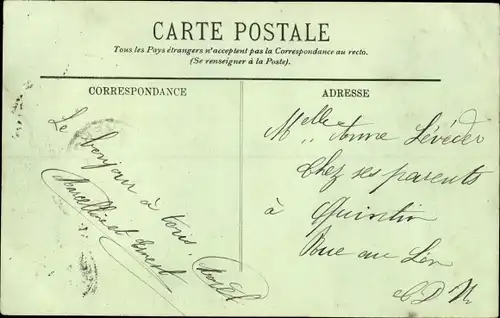 CARTE POSTALE
Tous les Pays étrangers n'acceptent pas la Correspondance au recto.
(Se renseigner à la Poste).
CORRESPONDANCE
ADRESSE
Le bonjour à tous.
et Ernest
Melle Anne Lévéder
Chez ses parents
à Quintin
Rue au Lin
C D N